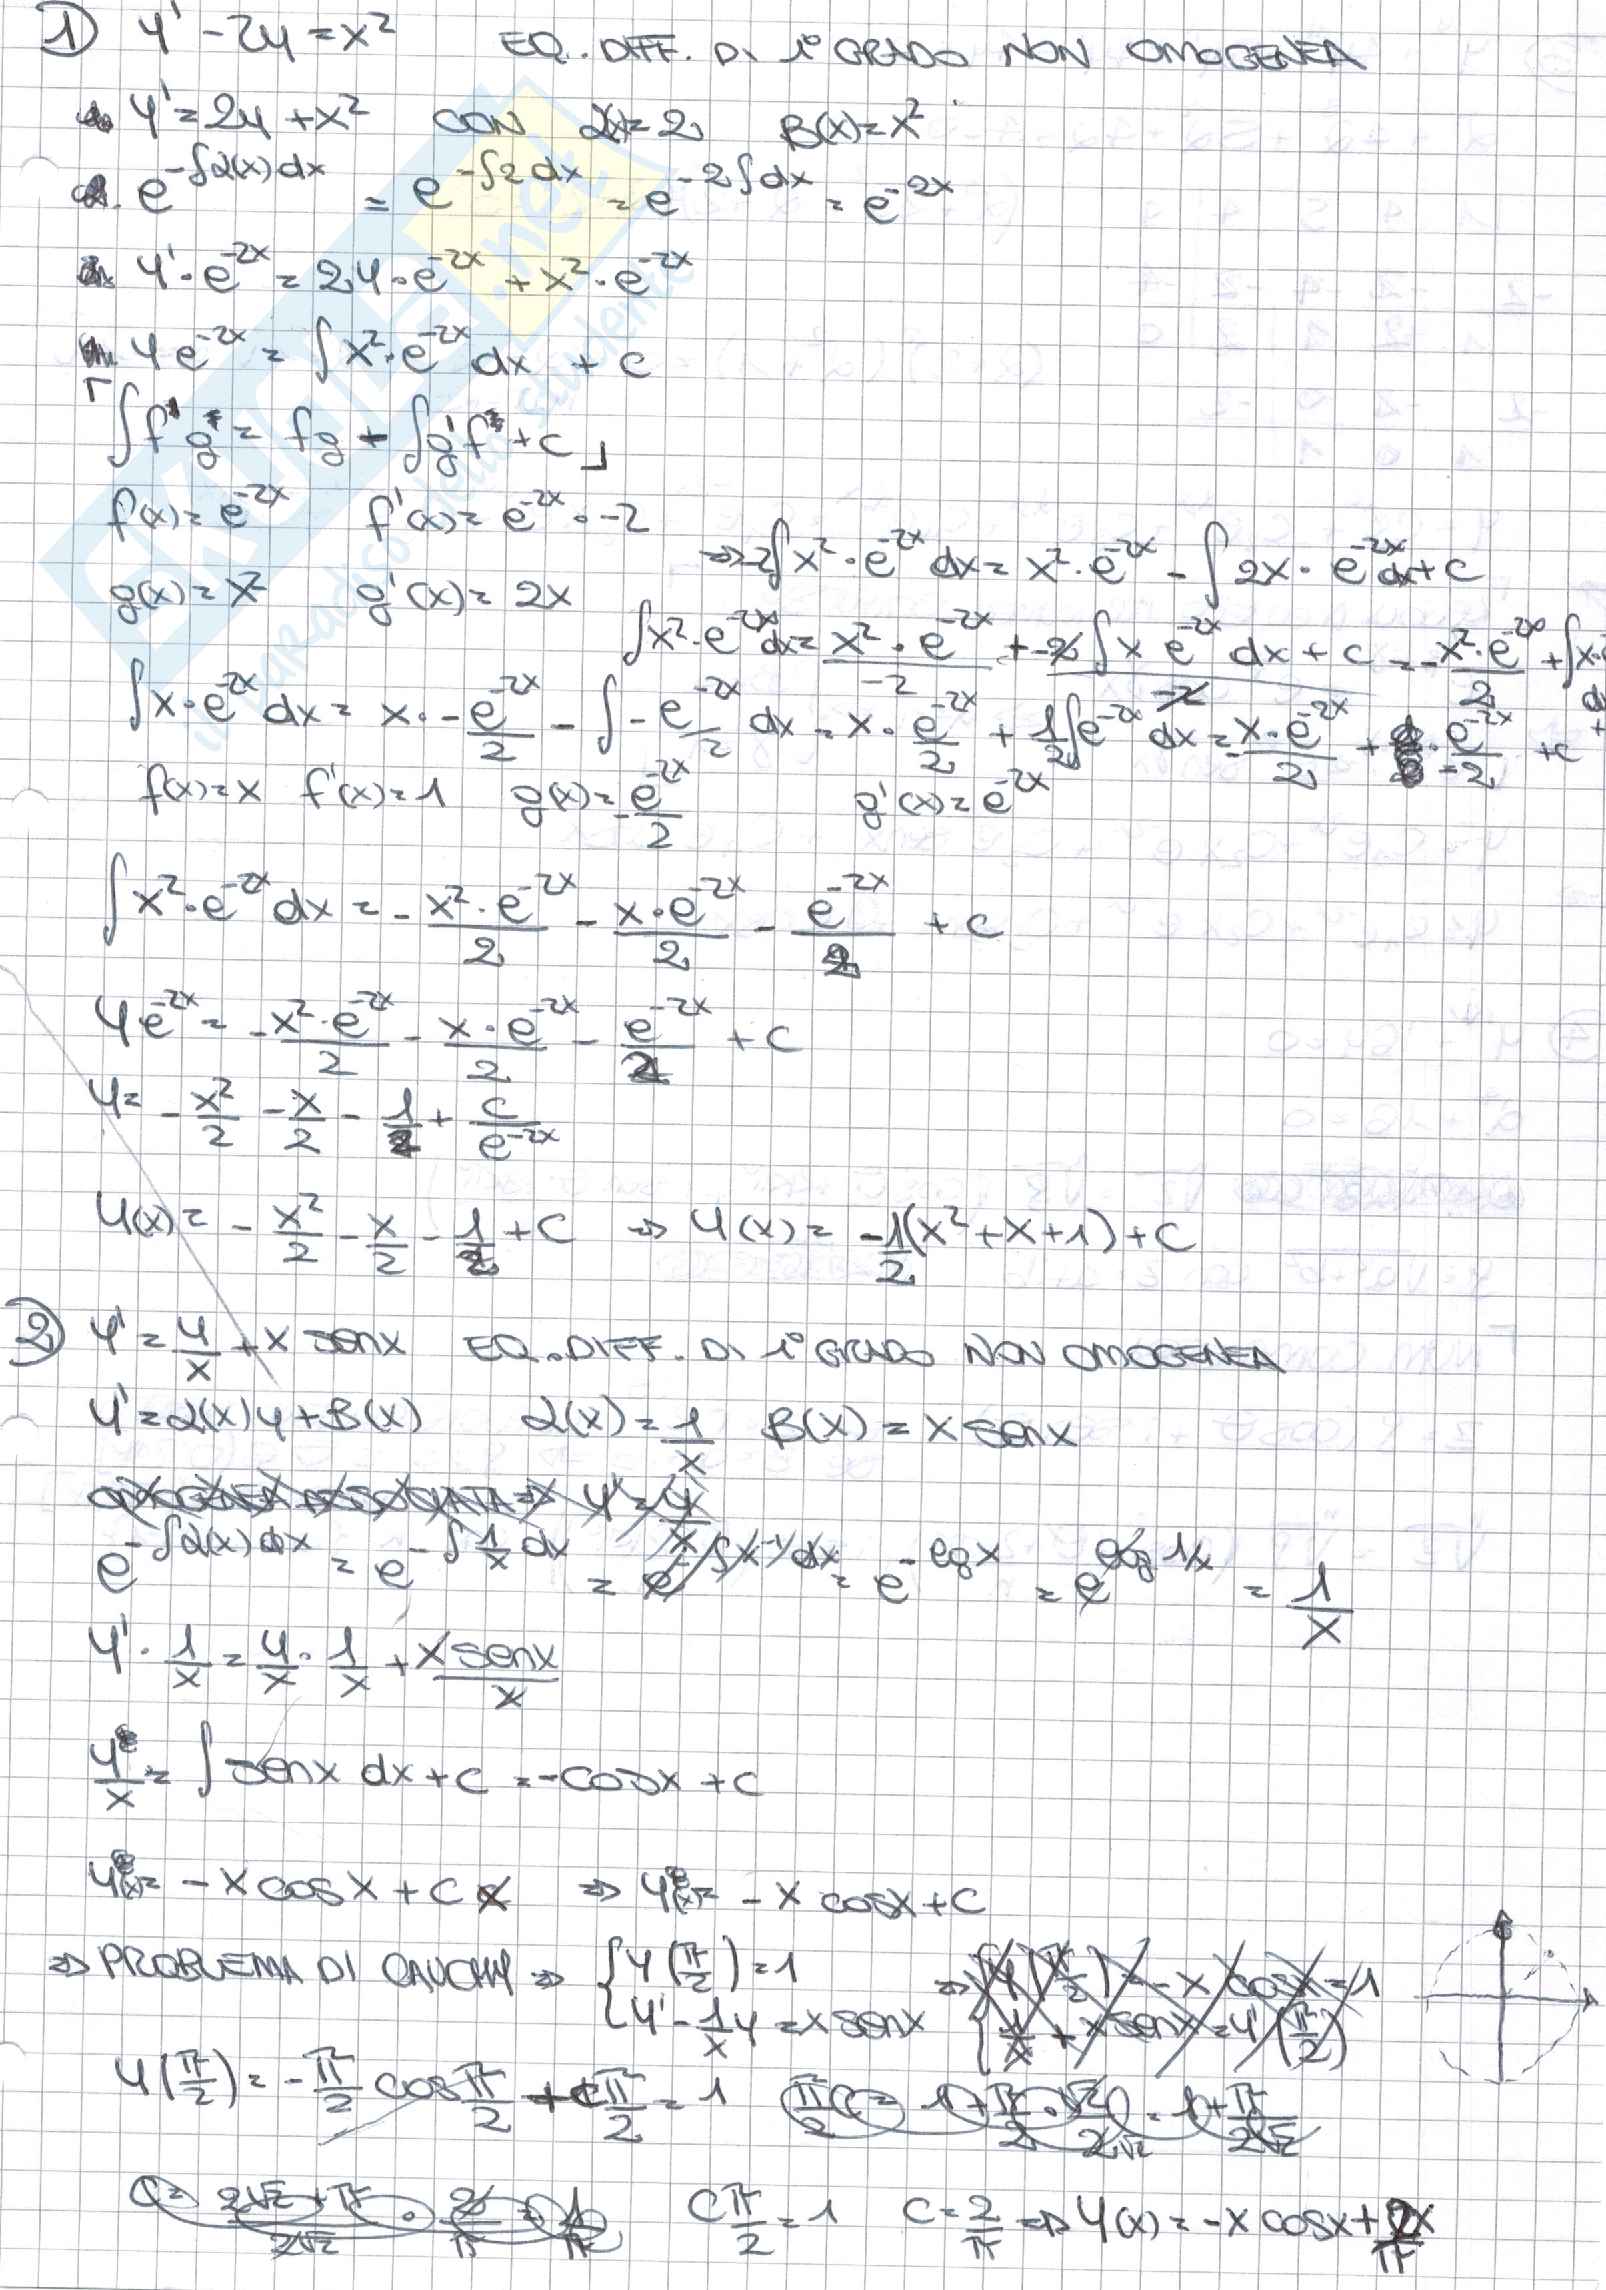 1) y' - 2y = x² EQ. DIFF. DI 1° GRADO NON OMOGENEA
y' = 2y + x² CON α(x) = 2 β(x) = x²
e^{-∫α(x)dx} = e^{-∫2dx} = e^{-2∫dx} = e^{-2x}
y'·e^{-2x} = 2y·e^{-2x} + x²·e^{-2x}
y e^{-2x} = ∫x²·e^{-2x} dx + c
⌈∫f'g = fg - ∫g'f + c⌋
f(x) = e^{-2x} f'(x) = e^{-2x}·-2
⇒ -2∫x²·e^{-2x} dx = x²·e^{-2x} - ∫2x·e^{-2x} dx + c
g(x) = x² g'(x) = 2x
∫x²·e^{-2x} dx = x²·e^{-2x}/-2 + -2∫x e^{-2x} dx + c/-2 = -x²·e^{-2x}/2 + ∫x·
∫x·e^{-2x} dx = x·-e^{-2x}/2 - ∫-e^{-2x}/2 dx = x·e^{-2x}/2 + 1/2∫e^{-2x} dx = -x·e^{-2x}/2 + e^{-2x}/-2 + c
f(x) = x f'(x) = 1 g(x) = -e^{-2x}/2 g'(x) = e^{-2x}
∫x²·e^{-2x} dx = -x²·e^{-2x}/2 - x·e^{-2x}/2 - e^{-2x}/2 + c
y e^{-2x} = -x²·e^{-2x}/2 - x·e^{-2x}/2 - e^{-2x}/2 + c
y = -x²/2 - x/2 - 1/2 + c/e^{-2x}
y(x) = -x²/2 - x/2 - 1/2 + c ⇒ y(x) = -1/2(x² + x + 1) + c
2) y' = y/x + x senx EQ. DIFF. DI 1° GRADO NON OMOGENEA
y' = α(x)y + β(x) α(x) = 1/x β(x) = x senx
OMOGENEA ASSOCIATA ⇒ y' = y/x
e^{-∫α(x)dx} = e^{-∫1/x dx} = e^{-∫x^{-1}dx} = e^{-log x} = e^{log 1/x} = 1/x
y'·1/x = y/x·1/x + x senx/x
y/x = ∫senx dx + c = -cosx + c
y(x) = -x cosx + c x ⇒ y(x) = -x cosx + c
⇒ PROBLEMA DI CAUCHY ⇒ { y(π/2) = 1 ⇒ { y(π/2) = -x cosx = 1
y' - 1/x y = x senx 1/x + x senx = y'(π/2)
y(π/2) = -π/2 cos π/2 + c π/2 = 1 π/2 c = 1 + π/2·√2/2√2 = 1 + π/2√2
c = 2√2+π/2√2 · 2/π = 1/π c π/2 = 1 c = 2/π ⇒ y(x) = -x cosx + 2x/π
SKUOLA.net